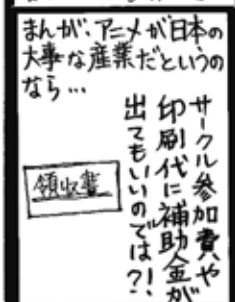 まんが、アニメが日本の
大事な産業だというの
なら…
サークル参加費や
印刷代に補助金が
出てもいいのでは?!
領収書